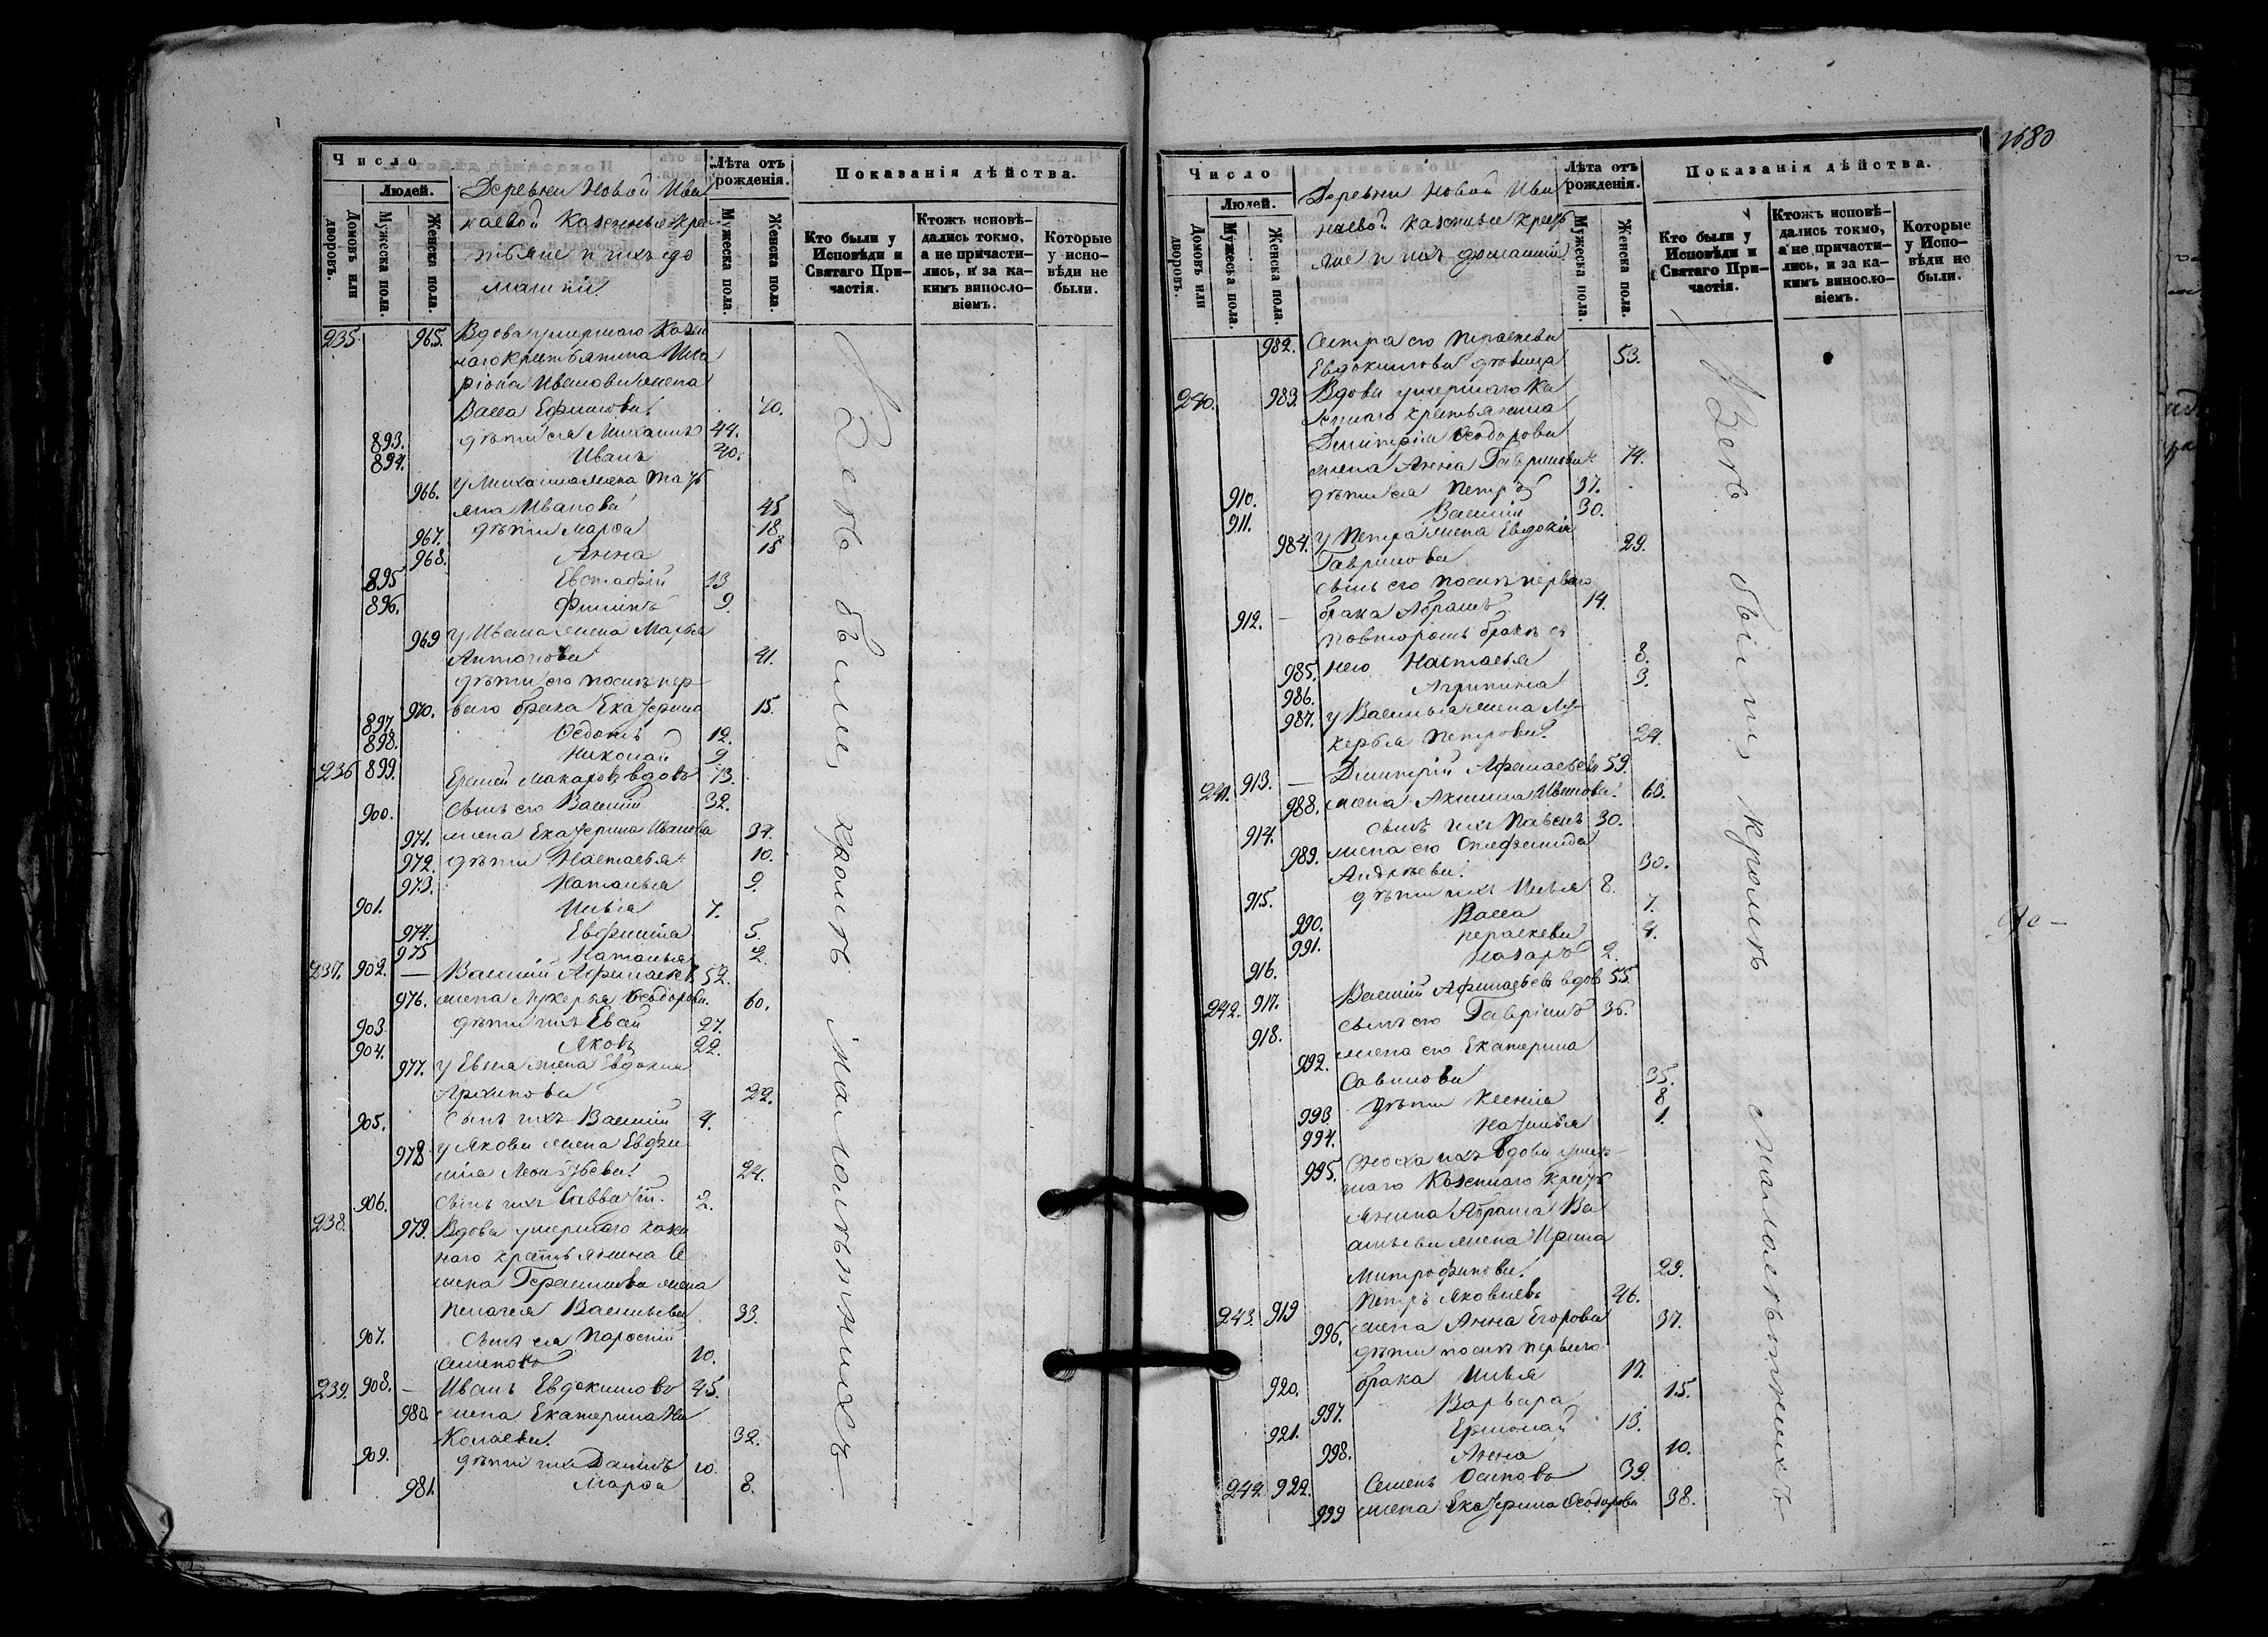 Число
Людей.
Домовъ или дворовъ.
Мужеска пола.
Женска пола.
Деревни Новой Ива
наевой Казенные кре
стьяне и ихъ до
машніи
Лѣта отъ рожденія.
Мужеска пола.
Женска пола.
Показанія дѣйства.
Кто были у Исповѣди и Святаго Причастія.
Ктожъ исповѣдались токмо, а не причастились, и за какимъ винословіемъ.
Которые у исповѣди не были.
235. 965. Вдова умершаго Казен
наго крестьянина Ила
ріона Иванова жена
Васса Ефимова 70.
893. дѣти ея Михаилъ 44.
894. Иванъ 40.
966. у Михаила жена Татья
на Иванова 45
967. дѣти Марѳа 18.
968. Анна 15
895 Евстафій 13
896. Филипъ 9.
969 у Ивана жена Марья
Антонова 41.
дѣти его носихъ пер
970. ваго брака Екатерина 15.
897. Ѳедотъ 12.
898. Николай 9
236 899. Еремей Макаровъ вдовъ 73.
900. Сынъ его Василій 32.
971. жена Екатерина Иванова 34.
972. дѣти Настасья 10.
973. Наталья 9.
901. Илья 7.
974. Евфимія 5.
975 Наталья 2.
237. 902. — Василій Афанасьев 52.
976. жена Лукерья Ѳеодорова 60.
903 дѣти ихъ Евсей 27.
904. Яковъ 22.
977. у Евсея жена Евдокия
Архипова 22.
905. Сынъ ихъ Василій 4.
978 у Якова жена Евфи
мія Леонтьева 24.
906. Сынъ ихъ Савватій. 2.
238. 979. Вдова умершаго казен
наго крестьянина Се
мена Герасимова жена
Пелагея Васильева 33.
907. Сынъ ея
Семеновъ 10.
239. 908. — Иванъ Евдокимовъ 45.
980. жена Екатерина Ни
колаева. 32.
909. дѣти ихъ Данилъ 10.
981. Марѳа 8.
Всѣ были, кромѣ малолѣтнихъ
1680
Число
Людей.
Домовъ или дворовъ.
Мужеска пола.
Женска пола.
Деревни Новой Ива
наевой казенные кресть
яне и ихъ домашніи
Лѣта отъ рожденія.
Мужеска пола.
Женска пола.
Показанія дѣйства.
Кто были у Исповѣди и Святаго Причастія.
Ктожъ исповѣдались токмо, а не причастились, и за какимъ винословіемъ.
Которые у Исповѣди не были.
982. Сестра его Параскева
Евдокимова дѣвица 53.
240. 983. Вдова умершаго Ка
зеннаго крестьянина
Димитрія Ѳеодорова
жена Анна Гаврилова 74.
910. дѣти ея Петръ 37.
911. Василій 30.
984. у Петра жена Евдокія
Гаврилова 29.
сынъ его носихъ перваго
912. — брака Абрамъ 14.
повторомъ бракѣ съ
985. нею Настасья 8.
986. Агрипина 3.
987. у Василья жена Лу
керья Петрова 24.
241. 913. — Димитрій Афанасьевъ 59.
988. жена Акилина Иванова 63.
914. Сынъ ихъ Павелъ 30.
989. жена его Степанида
Андреева. 30.
915. дѣти ихъ Илья 8.
990. Васса 7.
991. Пераскева 4.
916. Назаръ 2.
242. 917. Василій Афанасьевъ вдов 55.
918. сынъ его Гавріилъ 36.
992. жена его Екатерина
Савинова 35.
993. дѣти Ксенія 8
994. Наталья 1.
995. Сноха ихъ вдова умер
шаго Казеннаго кресть
янина Абрама Ва
сильева жена Ирина
Митрофанова. 29.
243. 919 Петръ Яковлевъ 46.
996. жена Анна Егорова 37.
дѣти носихъ перваго
920. брака Илья 17.
997. Варвара 15.
921. Ермолай 13.
998. Анна 10.
244. 922. Семенъ Осиповъ 39.
999 жена Екатерина Ѳеодорова 38.
Всѣ были, кромѣ малолѣтнихъ